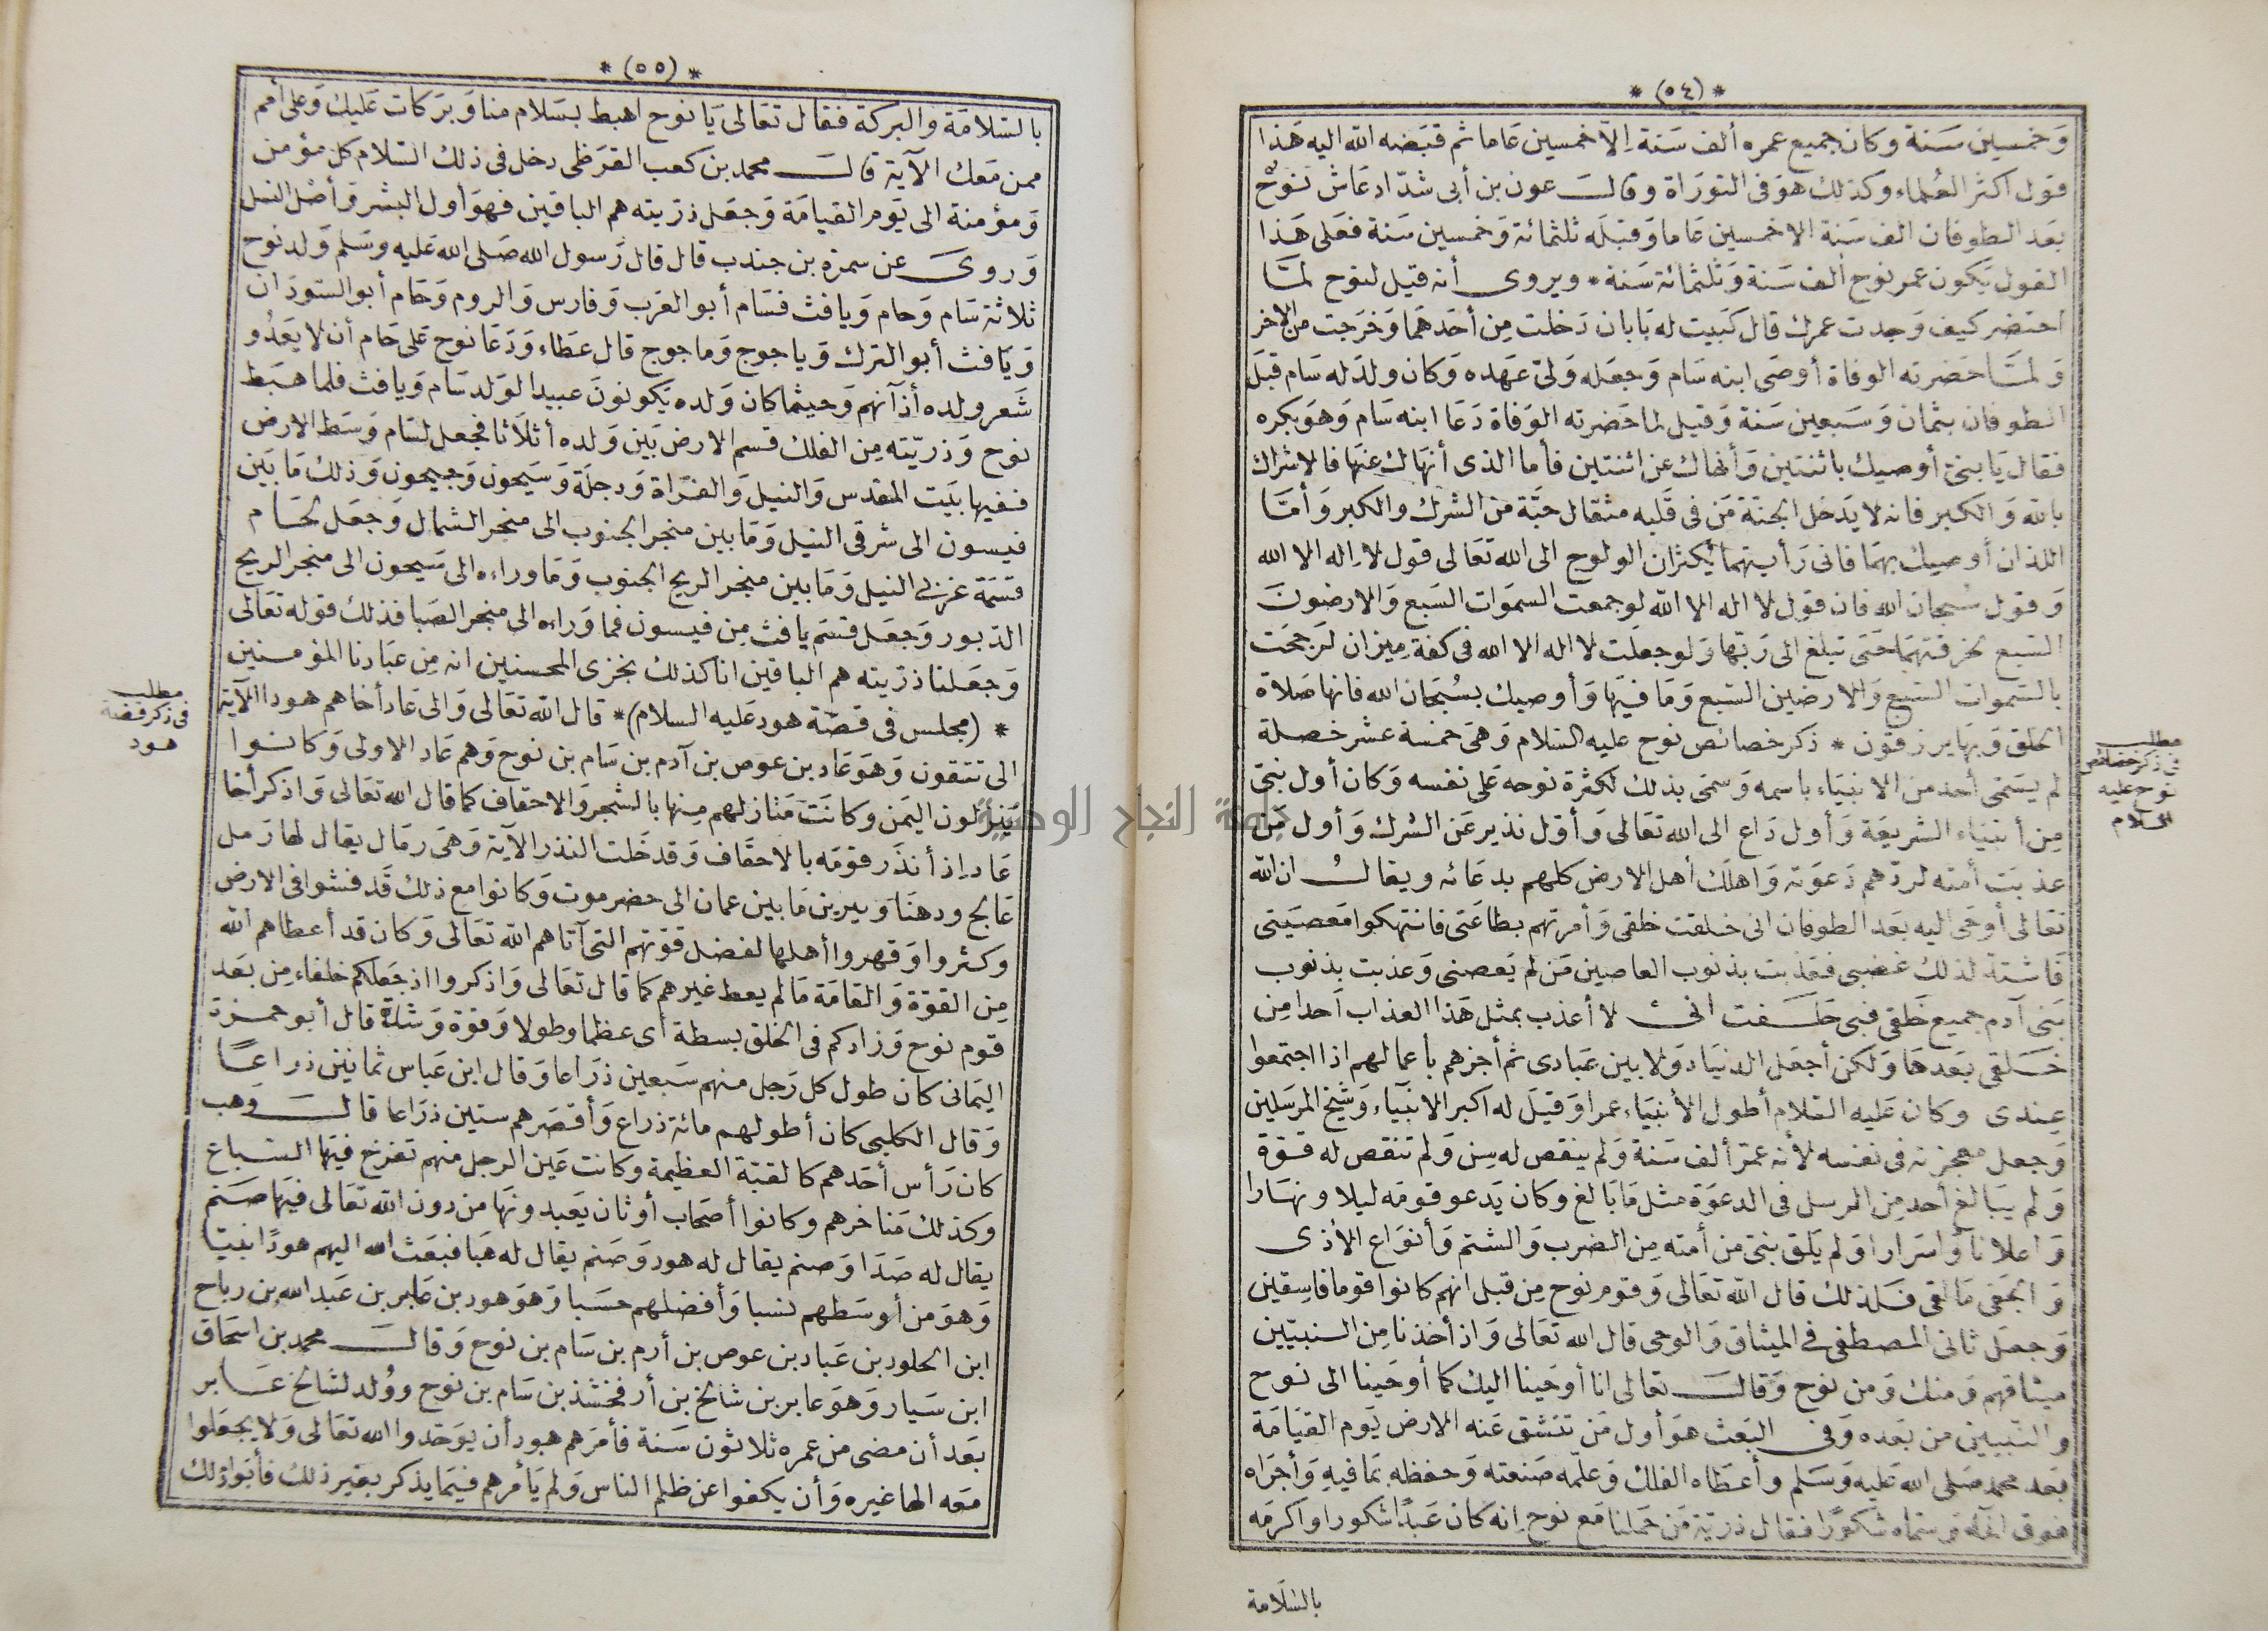 *(٥٤)*
وخمسين سنة وكان جميع عمره ألف سنة الا خمسين عاما ثم قبضه الله اليه هذا
قول اكثر العلماء وكذلك هو فى التوراة وقال عون بن أبى شداد عاش نوح
بعد الطوفان الف سنة الا خمسين عاما وقبله ثلثمائة وخمسين سنة فعلى هذا
القول يكون عمر نوح ألف سنة وثلثمائة سنة * ويروى أنه قيل لنوح لما
احتضر كيف وجدت عمرك قال كبيت له بابان دخلت من أحدهما وخرجت من الاخر
ولما حضرته الوفاة أوصى ابنه سام وجعله ولى عهده وكان ولد له سام قبل
الطوفان بثمان وسبعين سنة وقيل لما حضرته الوفاة دعا ابنه سام وهو بكره
فقال يا بنى أوصيك باثنتين وأنهاك عن اثنتين فأما الذى أنهاك عنها فالاشراك
بالله والكبر فانه لا يدخل الجنة من فى قلبه مثقال حبة من الشرك والكبر وأما
اللذان أوصيك بهما فانى رأيتهما يكثران الولوج الى الله تعالى قول لا اله الا الله
وقول سبحان الله فان قول لا اله الا الله لو جمعت السموات السبع والارضون
السبع لخرقتهما حتى تبلغ الى ربها ولو جعلت لا اله الا الله فى كفة ميزان لرجحت
بالسموات السبع والارضين السبع وما فيها وأوصيك بسبحان الله فانها صلاة
الخلق وبها يرزقون * ذكر خصائص نوح عليه السلام وهى خمسة عشر خصلة
لم يسمى أحد من الانبياء باسمه وسمى بذلك لكثرة نوحه على نفسه وكان أول نبى
من أنبياء الشريعة وأول داع الى الله تعالى وأول نذير عن الشرك وأول من
عذبت أمته لردهم دعوته واهلك أهل الارض كلهم بدعائه ويقال ان الله
تعالى أوحى اليه بعد الطوفان انى خلقت خلقى وأمرتهم بطاعتى فانتهكوا معصيتى
فاشتد لذلك غضبى فعذبت بذنوب العاصين من لم يعصنى وعذبت بذنوب
بنى آدم جميع خلقى فبى حلفت انى لا أعذب بمثل هذا العذاب أحدا من
خلقى بعدها ولكن أجعل الدنيا دولا بين عبادى ثم أجزهم بأعمالهم اذا اجتمعوا
عندى وكان عليه السلام أطول الأنبياء عمرا وقيل له اكبر الانبياء وشيخ المرسلين
وجعل معجزته فى نفسه لأنه عمر ألف سنة ولم ينقص له سن ولم تنقص له قوة
ولم يبالغ أحد من الرسل فى الدعوة مثل ما بالغ وكان يدعو قومه ليلا ونهارا
واعلانا واسرارا ولم يلق نبى من أمته من الضرب والشتم وأنواع الأذى
والجفى ما لقى فلذلك قال الله تعالى وقوم نوح من قبل انهم كانوا قوما فاسقين
وجعل ثانى المصطفى فى الميثاق والوحى قال الله تعالى واذ أخذنا من النبيين
ميثاقهم ومنك ومن نوح وقال تعالى انا أوحينا اليك كما أوحينا الى نوح
والنبيين من بعده وفى البعث هو أول من تنشق عنه الارض يوم القيامة
بعد محمد صلى الله عليه وسلم وأعطاه الفلك وعلمه صنعته وحفظه بما فيه وأجراه
فوق الماء وسماه شكورا فقال ذرية من حملنا مع نوح انه كان عبدا شكورا واكرمه
بالسلامة
مطلب
فى ذكر خصائص
نوح عليه
السلام
*(٥٥)*
بالسلامة والبركة فقال تعالى يا نوح اهبط بسلام منا وبركات عليك وعلى أمم
ممن معك الآية قال محمد بن كعب القرظى دخل فى ذلك السلام كل مؤمن
ومؤمنة الى يوم القيامة وجعل ذريته هم الباقين فهو أول البشر وأصل النسل
وروى عن سمرة بن جندب قال قال رسول الله صلى الله عليه وسلم ولد نوح
ثلاثة سام وحام ويافث فسام أبو العرب وفارس والروم وحام أبو السودان
ويافث أبو الترك وياجوج وماجوج قال عطاء ودعا نوح على حام أن لا يعدو
شعر ولده أذآنهم وحيثما كان ولده يكونون عبيدا لولد سام ويافث فلما هبط
نوح وذريته من الفلك قسم الارض بين ولده أثلاثا فجعل لسام وسط الارض
ففيها بيت المقدس والنيل والفراة ودجلة وسيحون وجيحون وذلك ما بين
فيسون الى شرقى النيل وما بين منجر الجنوب الى منجر الشمال وجعل لحام
قسمة غربى النيل وما بين منجر الريح الجنوب وما وراءه الى سيحون الى منجر الريح
الدبور وجعل قسم يافث من فيسون فما وراءه الى منجر الصبا فذلك قوله تعالى
وجعلنا ذريته هم الباقين انا كذلك نجزى المحسنين انه من عبادنا المؤمنين
* (مجلس فى قصة هود عليه السلام) * قال الله تعالى والى عاد أخاهم هودا الآية
الى تتقون وهو عاد بن عوص بن آدم بن سام بن نوح وهم عاد الاولى وكانوا
ينزلون اليمن وكانت منازلهم منها بالشجر والاحقاف كما قال الله تعالى واذكر أخا
عاد اذ أنذر قومه بالاحقاف وقد خلت النذر الآية وهى رمال يقال لها رمل
عالج ودهنا ويبرين ما بين عمان الى حضرموت وكانوا مع ذلك قد فشوا فى الارض
وكثروا وقهروا أهلها لفضل قوتهم التى آتاهم الله تعالى وكان قد أعطاهم الله
من القوة والقامة ما لم يعط غيرهم كما قال تعالى واذكروا اذ جعلكم خلفاء من بعد
قوم نوح وزادكم فى الخلق بسطة أى عظما وطولا وقوة وشدة قال أبو حمزة
اليمانى كان طول كل رجل منهم سبعين ذراعا وقال ابن عباس ثمانين ذراعا
وقال الكلبى كان أطولهم مائة ذراع وأقصرهم ستين ذراعا قال وهب
كان رأس أحدهم كالقبة العظيمة وكانت عين الرجل منهم تفرخ فيها السباع
وكذلك مناخرهم وكانوا أصحاب أوثان يعبدونها من دون الله تعالى فيها صنم
يقال له صدا وصنم يقال له هود وصنم يقال له هبا فبعث الله اليهم هودا نبيا
وهو من أوسطهم نسبا وأفضلهم حسبا وهو هود بن عابر بن عبد الله بن رباح
ابن الحلود بن عباد بن عوص بن أرم بن سام بن نوح وقال محمد بن اسحاق
ابن سيار وهو عابر بن شالخ بن أرفخشذ بن سام بن نوح وولد لشالخ عابر
بعد أن مضى من عمره ثلاثون سنة فأمرهم هود أن يوحدوا الله تعالى ولا يجعلوا
معه الها غيره وأن يكفوا عن ظلم الناس ولم يأمرهم فيما يذكر بغير ذلك فأبوا ذلك
مطلب
فى ذكر قصة
هود
النجاح الوطنية